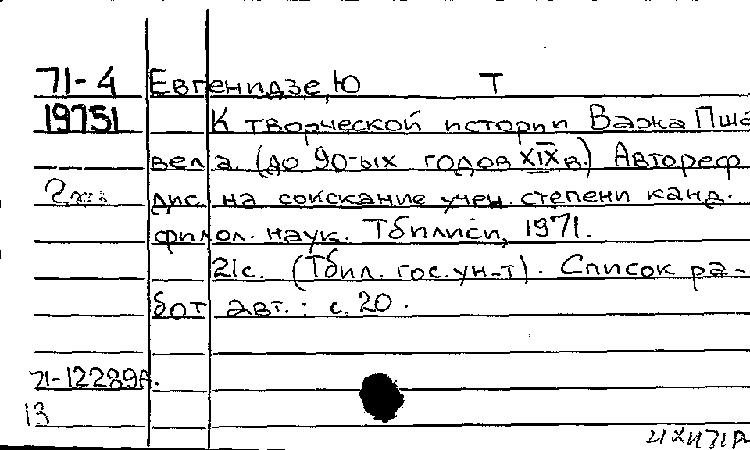 71-4 Евгенидзе, Ю Т
19751 К творческой истории Важа Пша
вела. (до 90-ых годов XIX в.) Автореф
дис. на соискание учен. степени канд.
филол. наук. Тбилиси, 1971.
21с. (Тбил. гос. ун-т). Список ра-
бот авт.: с. 20.
71-12289А.
13